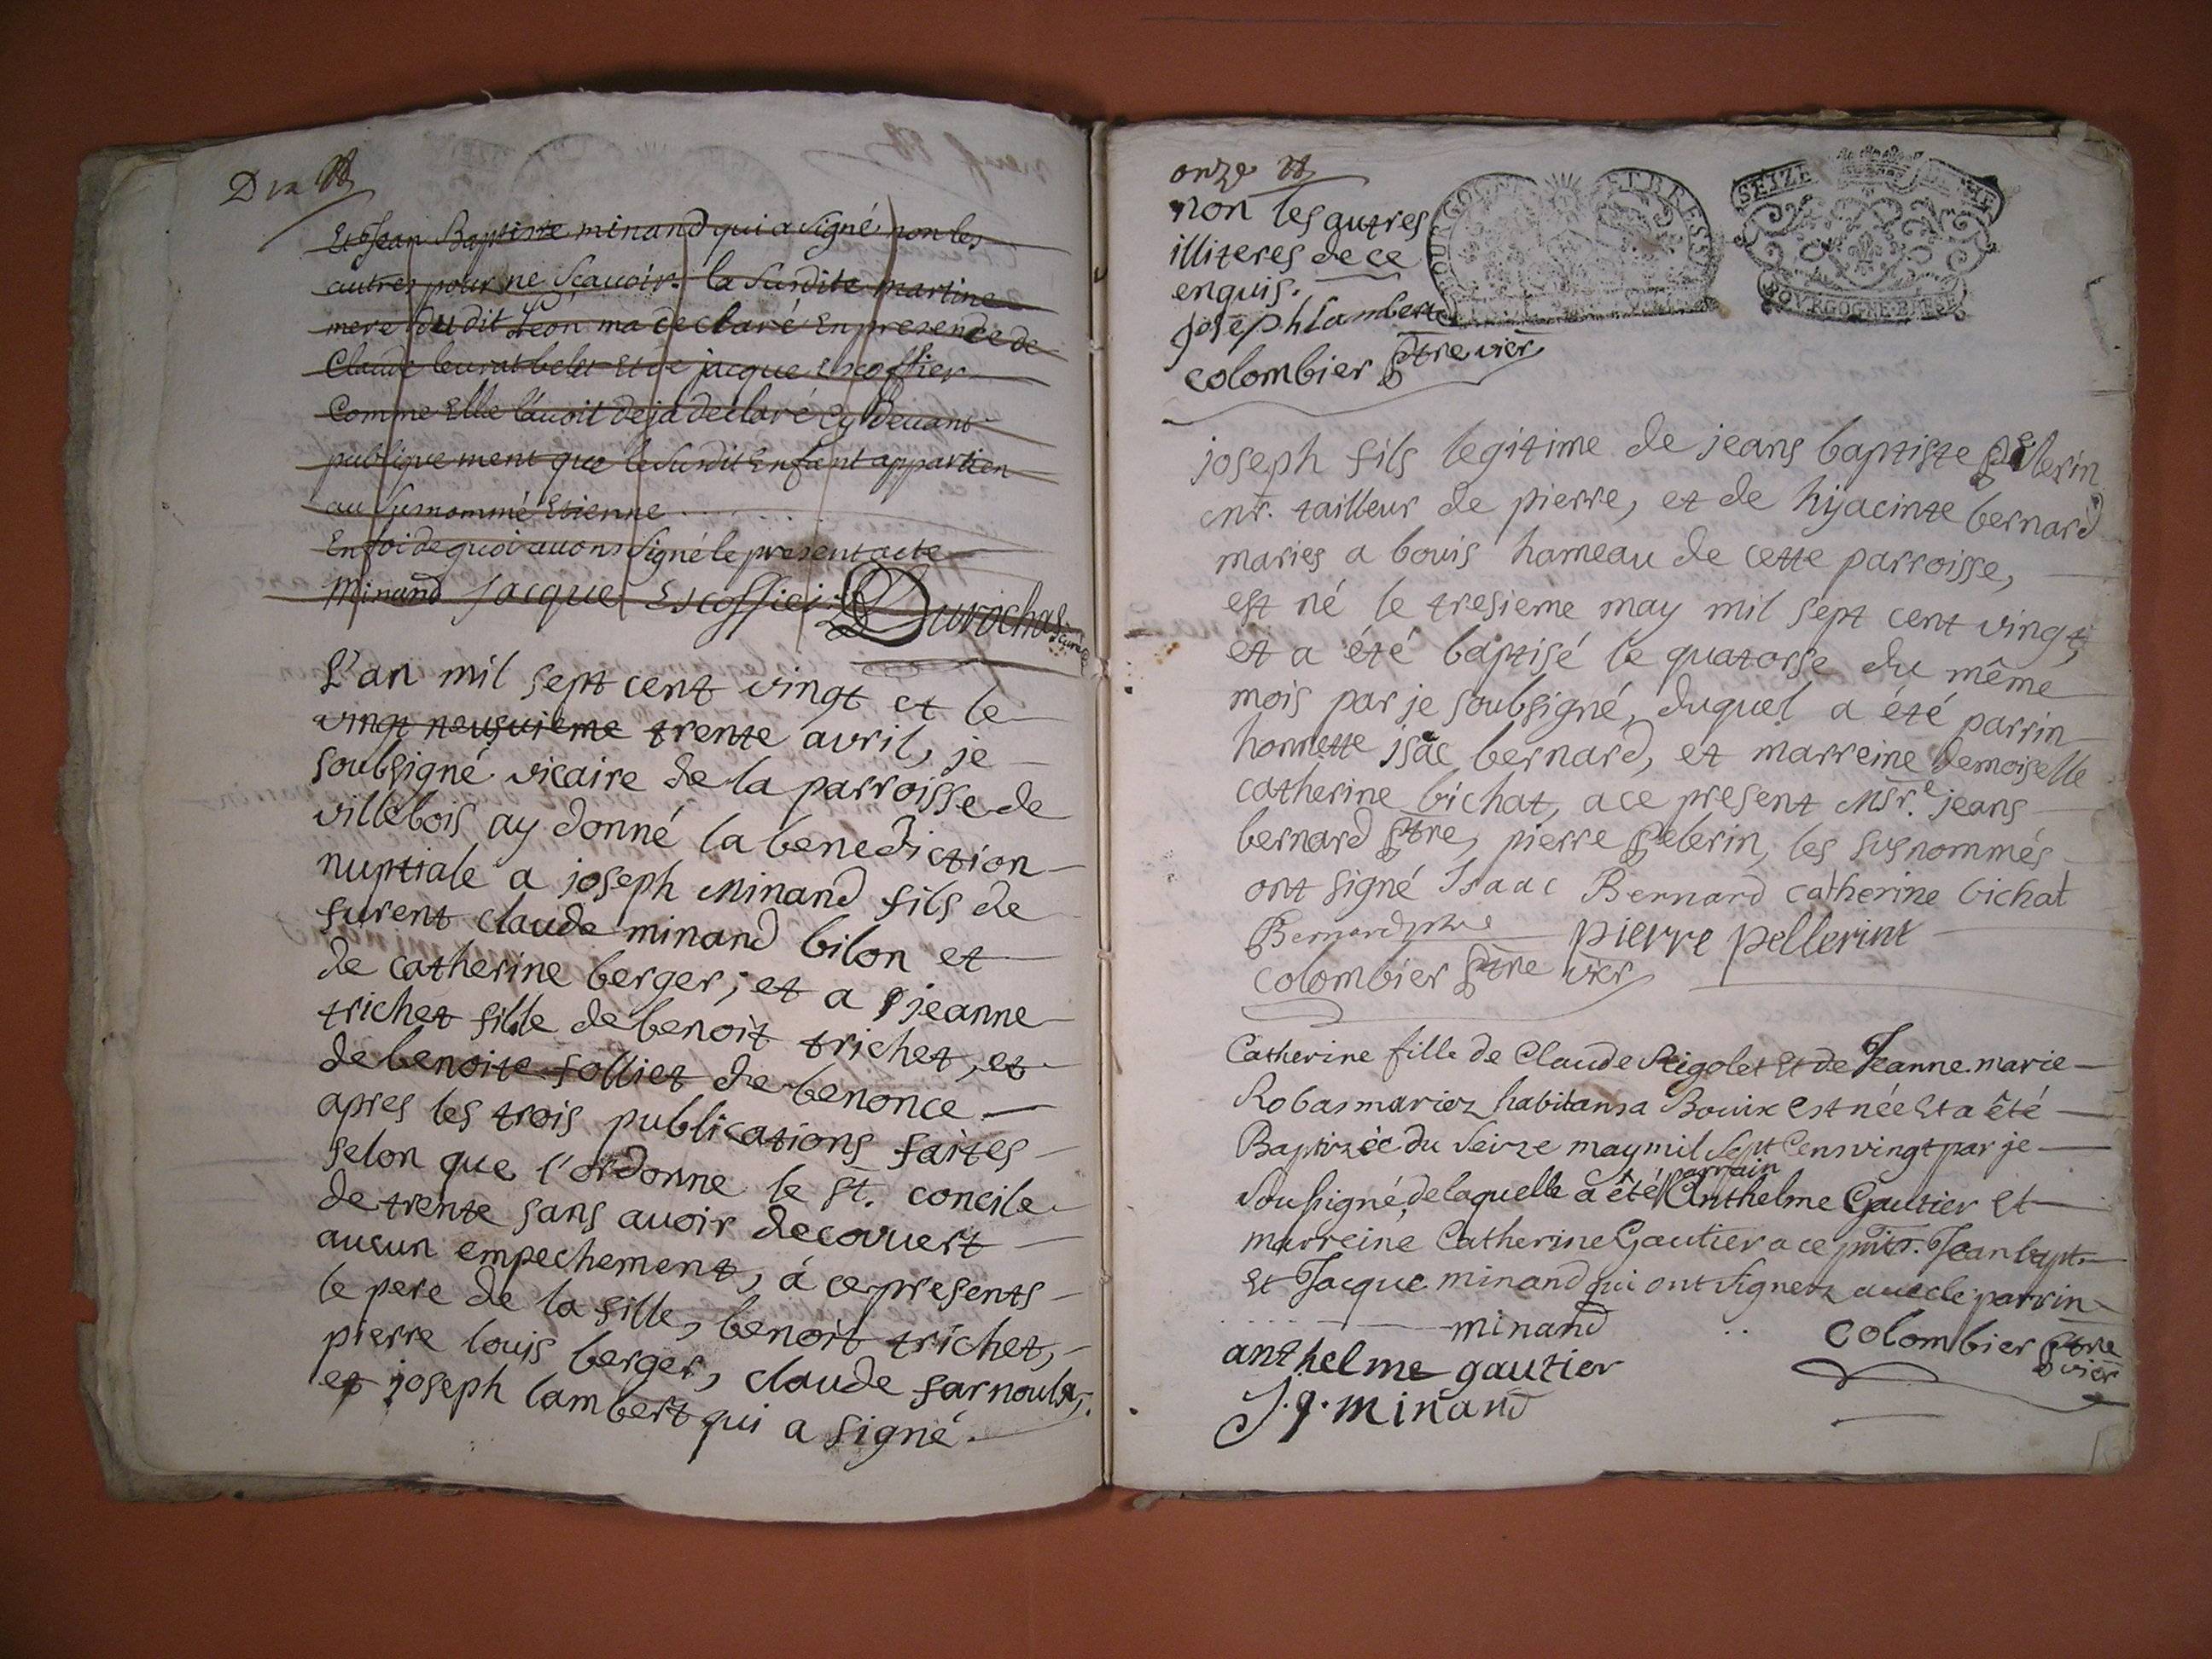 Dix
Et Jean Baptiste minand qui a signé non les
autres pour ne Scauoir. la Susdite martine
mere du dit Leon ma declaré En presence de
Claude leurat belet Et de jacque Escoffier
Comme Elle l'auoit deja declaré Cy deuant
publiquement que le Susdit Enfant appartien
au Surnommé Etienne
En foi de quoi auons Signé le present acte
Minand Jacque Escoffier Durochas Curé
L'an mil sept cent vingt et le
vingt neufuieme trente avril, je
soubsigné vicaire de la parroisse de
villebois ay donné la benediction
nuptiale a joseph Minand fils de
furent claude minand bilon et
de catherine berger; et a jeanne
trichet fille de benoit trichet, et
de benoite folliet de benonce
apres les trois publications faites
selon que l'ordonne le st. concile
de trente sans auoir decouuert
aucun empechement, á ce presents
le pere de la fille, benoit trichet,
pierre louis berger, claude farnoulx,
et joseph lambert qui a signé.
onze
non les autres
illiteres de ce
enquis.
joseph lambert
colombier ptre vier
SEIZE
BOVRGOGNE BRESSE
joseph fils legitime de jeans baptiste pelerin
mr. tailleur de pierre, et de hijacinte bernard
maries a bouis hameau de cette parroisse,
est né le tresieme may mil sept cent vingt,
et a été baptisé le quatorse du même
mois par je soubsigné, duquel a été parrin
honnette isac bernard, et marreine demoiselle
catherine bichat, a ce present Msr.e jeans
bernard ptre, pierre pelerin, les susnommés
ont signé Isaac Bernard catherine bichat
Bernard ptre pierre pellerint
colombier ptre vier
Catherine fille de Claude Rigolet Et de Jeanne marie
Robas mariez habitans a Bouix est née Et a êté
Baptizée du Seize may mil Sept Cens vingt par je
Soussigné, de laquelle a êté parrain Anthelme Gautier Et
marreine Catherine Gautier a ce pnts. Jean bapt.
Et Jacque minand qui ont signez auec le parrin
minand colombier ptre vier
anthelme gautier
J. q. minand